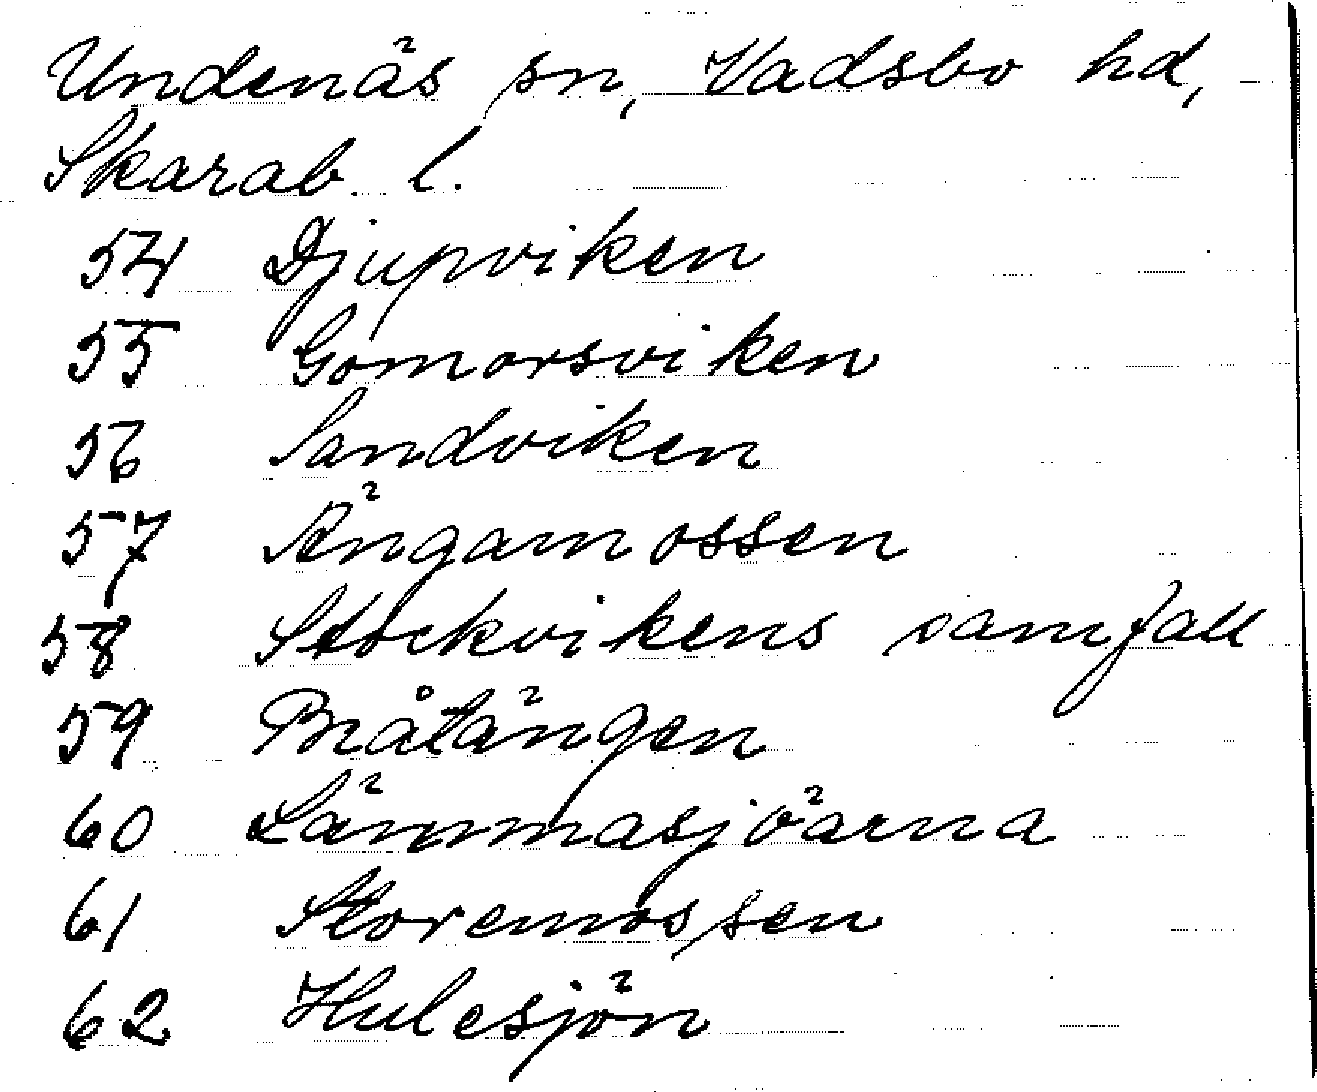 Undenäs sn, Vadsbo hd,
Skarab. l.
54 Djupviken
55 Gomorsviken
56 Sandviken
57 Ängamossen
58 Stockvikens samfäll
59 Bråtängen
60 Lämmasjöarna
61 Storemossen
62 Hulesjön